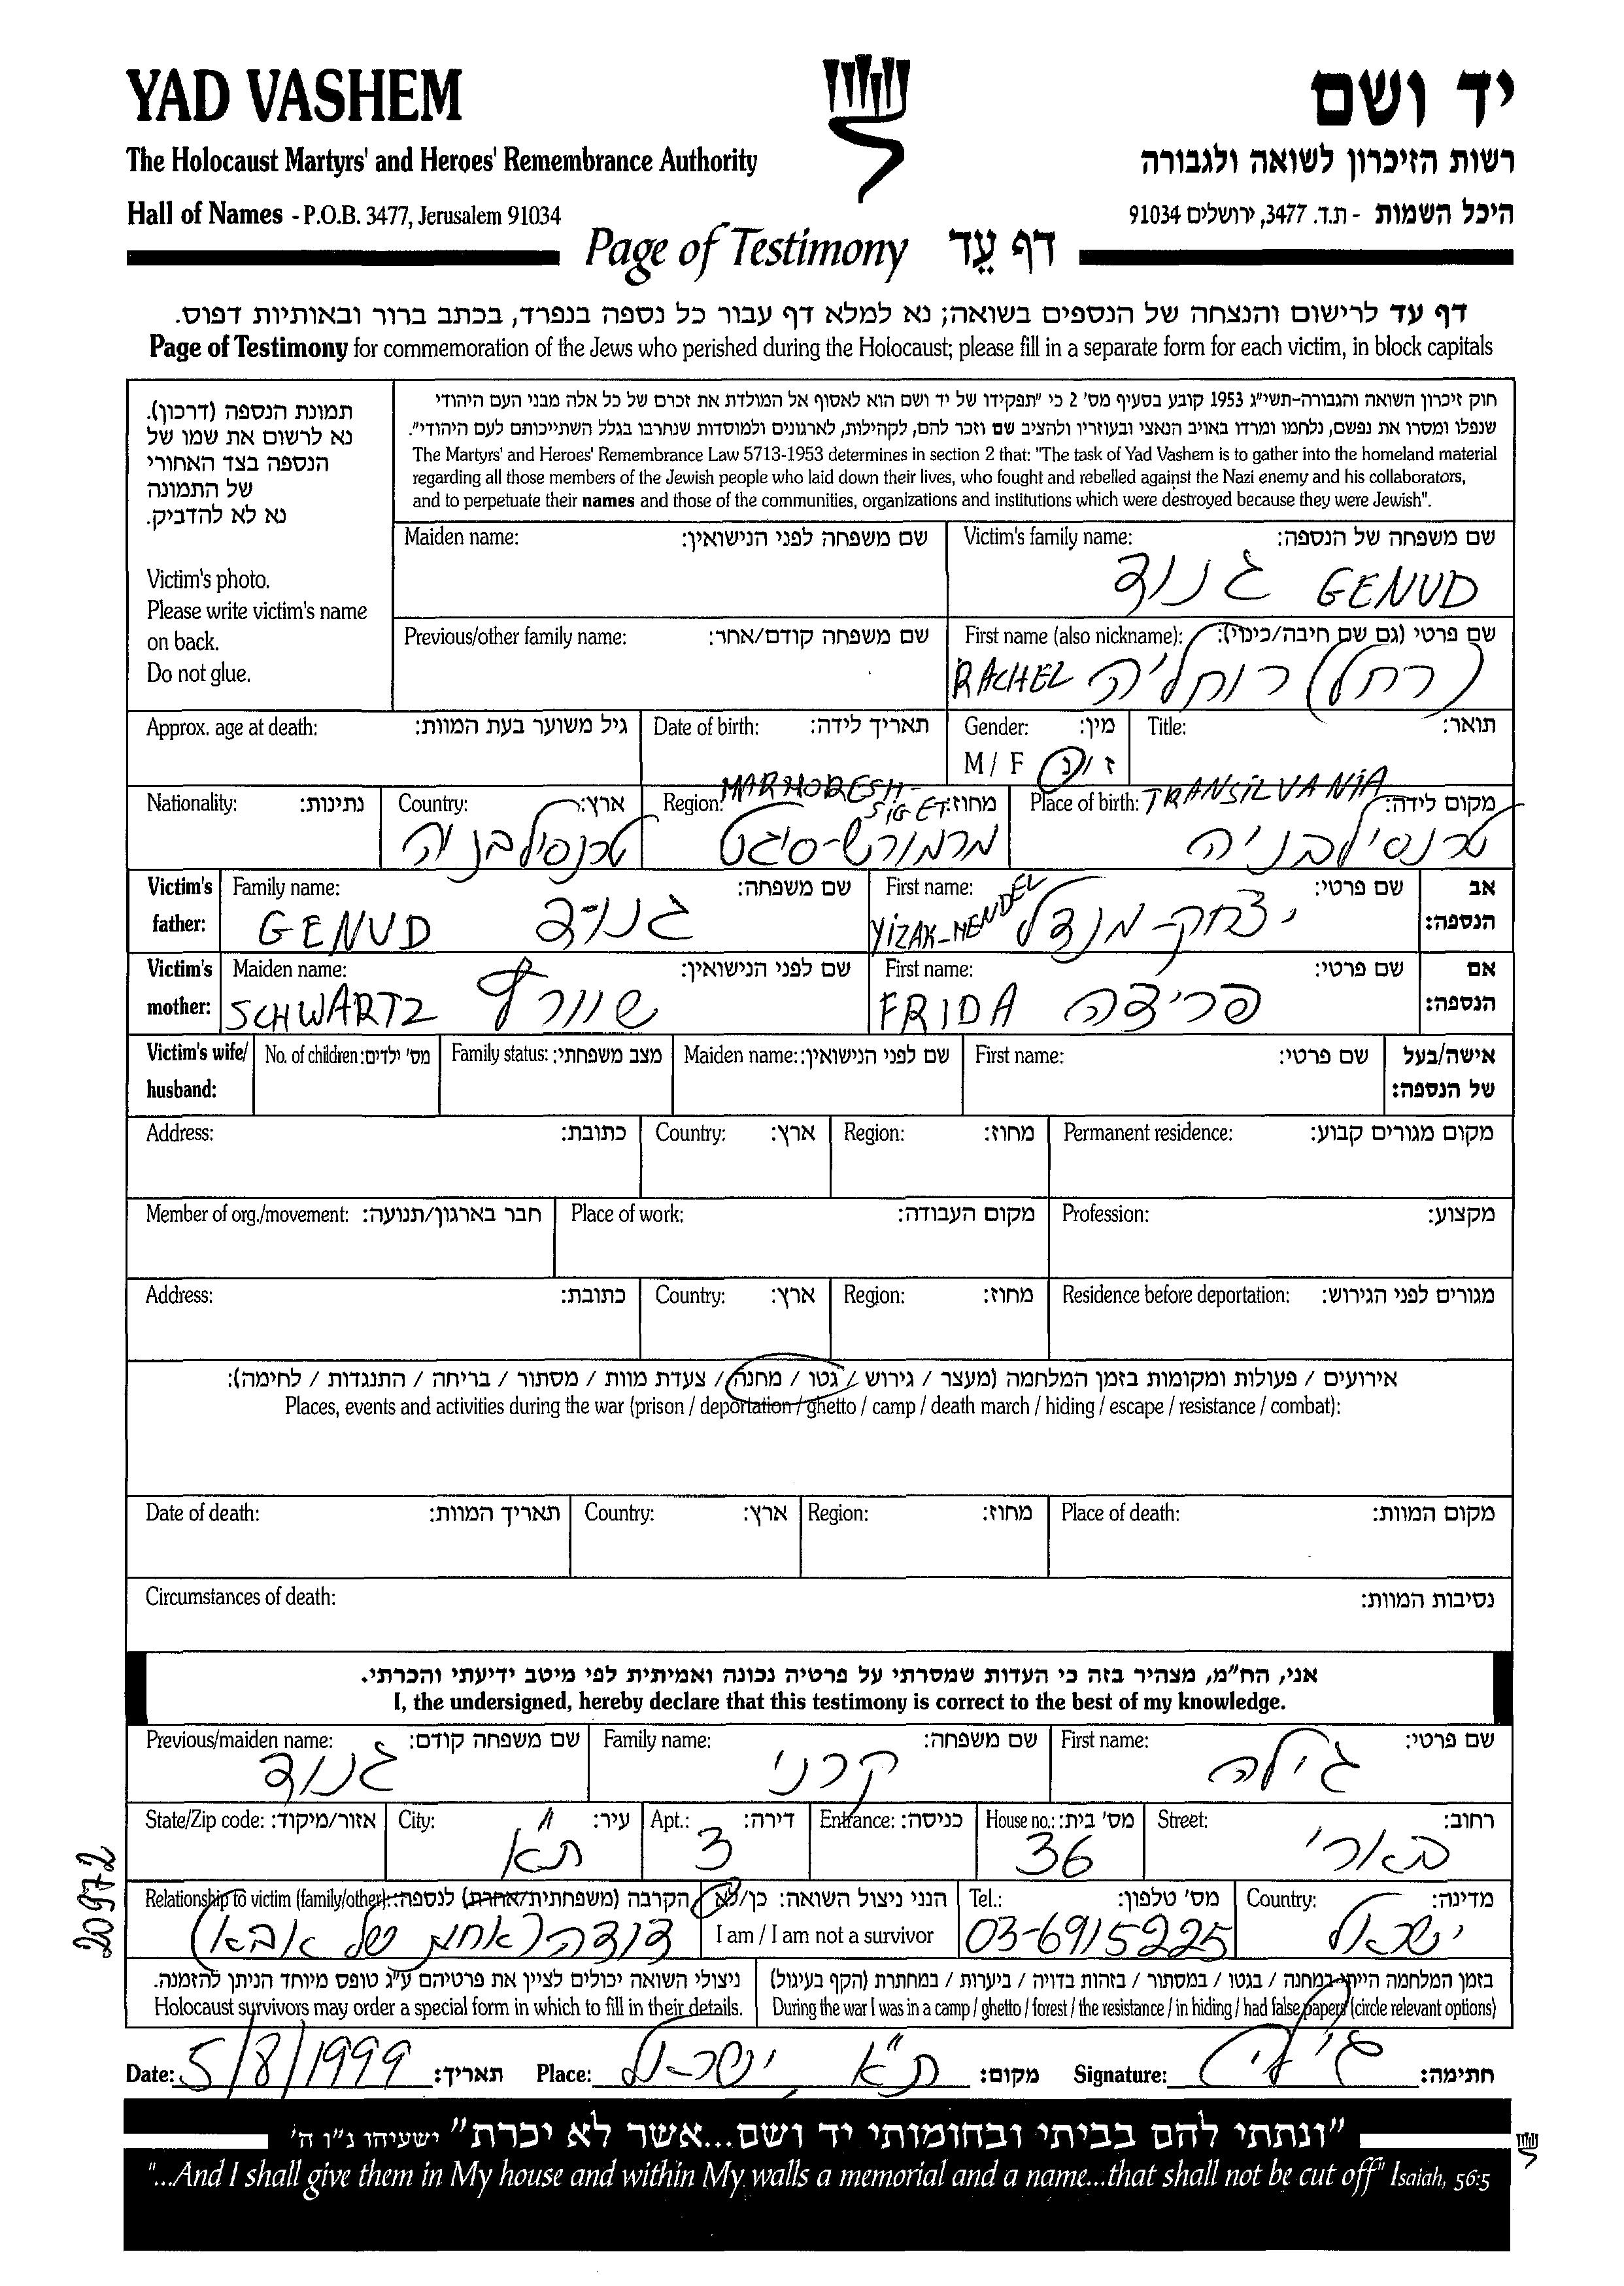 YAD VASHEM
יד ושם
The Holocaust Martyrs' and Heroes' Remembrance Authority
רשות הזיכרון לשואה ולגבורה
Hall of Names - P.O.B. 3477, Jerusalem 91034
היכל השמות - ת.ד. 3477, ירושלים 91034
Page of Testimony דף עֵד
דף עד לרישום והנצחה של הנספים בשואה; נא למלא דף עבור כל נספה בנפרד, בכתב ברור ובאותיות דפוס.
Page of Testimony for commemoration of the Jews who perished during the Holocaust; please fill in a separate form for each victim, in block capitals
תמונת הנספה (דרכון).
נא לרשום את שמו של
הנספה בצד האחורי
של התמונה
נא לא להדביק.
Victim's photo.
Please write victim's name
on back.
Do not glue.
חוק זיכרון השואה והגבורה-תשי"ג 1953 קובע בסעיף מס' 2 כי "תפקידו של יד ושם הוא לאסוף אל המולדת את זכרם של כל אלה מבני העם היהודי
שנפלו ומסרו את נפשם, נלחמו ומרדו באויב הנאצי ובעוזריו ולהציב שם וזכר להם, לקהילות, לארגונים ולמוסדות שנחרבו בגלל השתייכותם לעם היהודי".
The Martyrs' and Heroes' Remembrance Law 5713-1953 determines in section 2 that: "The task of Yad Vashem is to gather into the homeland material
regarding all those members of the Jewish people who laid down their lives, who fought and rebelled against the Nazi enemy and his collaborators,
and to perpetuate their names and those of the communities, organizations and institutions which were destroyed because they were Jewish".
Maiden name: שם משפחה לפני הנישואין:
Victim's family name: שם משפחה של הנספה:
גנוד GENUD
Previous/other family name: שם משפחה קודם/אחר:
First name (also nickname): שם פרטי (גם שם חיבה/כינוי):
RACHEL רוחליה (רחל)
Approx. age at death: גיל משוער בעת המוות:
Date of birth: תאריך לידה:
Gender: מין:
M / F ז / נ
Title: תואר:
Nationality: נתינות:
Country: ארץ:
טרנסילבניה
Region: מחוז:
MARMORESH-
SIGET
מרמורש-סיגט
Place of birth: מקום לידה:
TRANSILVANIA
טרנסילבניה
Victim's father:
Family name: שם משפחה:
GENUD גנוד
First name: שם פרטי:
YIZAK-MENDEL יצחק-מנדל
אב הנספה:
Victim's mother:
Maiden name: שם לפני הנישואין:
SCHWARTZ שוורץ
First name: שם פרטי:
FRIDA פרידה
אם הנספה:
Victim's wife/ husband:
No. of children: מס' ילדים:
Family status: מצב משפחתי:
Maiden name: שם לפני הנישואין:
First name: שם פרטי:
אישה/בעל של הנספה:
Address: כתובת:
Country: ארץ:
Region: מחוז:
Permanent residence: מקום מגורים קבוע:
Member of org./movement: חבר בארגון/תנועה:
Place of work: מקום העבודה:
Profession: מקצוע:
Address: כתובת:
Country: ארץ:
Region: מחוז:
Residence before deportation: מגורים לפני הגירוש:
אירועים / פעולות ומקומות בזמן המלחמה (מעצר / גירוש / גטו / מחנה / צעדת מוות / מסתור / בריחה / התנגדות / לחימה):
Places, events and activities during the war (prison / deportation / ghetto / camp / death march / hiding / escape / resistance / combat):
Date of death: תאריך המוות:
Country: ארץ:
Region: מחוז:
Place of death: מקום המוות:
Circumstances of death: נסיבות המוות:
אני, הח"מ, מצהיר בזה כי העדות שמסרתי על פרטיה נכונה ואמיתית לפי מיטב ידיעתי והכרתי.
I, the undersigned, hereby declare that this testimony is correct to the best of my knowledge.
Previous/maiden name: שם משפחה קודם:
גנוד
Family name: שם משפחה:
קרני
First name: שם פרטי:
גילה
State/Zip code: אזור/מיקוד:
City: עיר:
ת"א
Apt.: דירה:
3
Entrance: כניסה:
House no.: מס' בית:
36
Street: רחוב:
בארי
Relationship to victim (family/other): הקרבה (משפחתית/אחרת) לנספה:
דודה (אחות של אבא)
הנני ניצול השואה: כן/לא
I am / I am not a survivor
Tel.: מס' טלפון:
03-6915225
Country: מדינה:
ישראל
ניצולי השואה יכולים לציין את פרטיהם ע"ג טופס מיוחד הניתן להזמנה.
Holocaust survivors may order a special form in which to fill in their details.
בזמן המלחמה הייתי במחנה / בגטו / במסתור / בזהות בדויה / ביערות / במחתרת (הקף בעיגול)
During the war I was in a camp / ghetto / forest / the resistance / in hiding / had false papers (circle relevant options)
Date: 5/8/1999 תאריך:
Place: ת"א ישראל מקום:
Signature: חתימה:
20972
"ונתתי להם בביתי ובחומותי יד ושם...אשר לא יכרת" ישעיהו נ"ו ה'
"...And I shall give them in My house and within My walls a memorial and a name...that shall not be cut off" Isaiah, 56:5